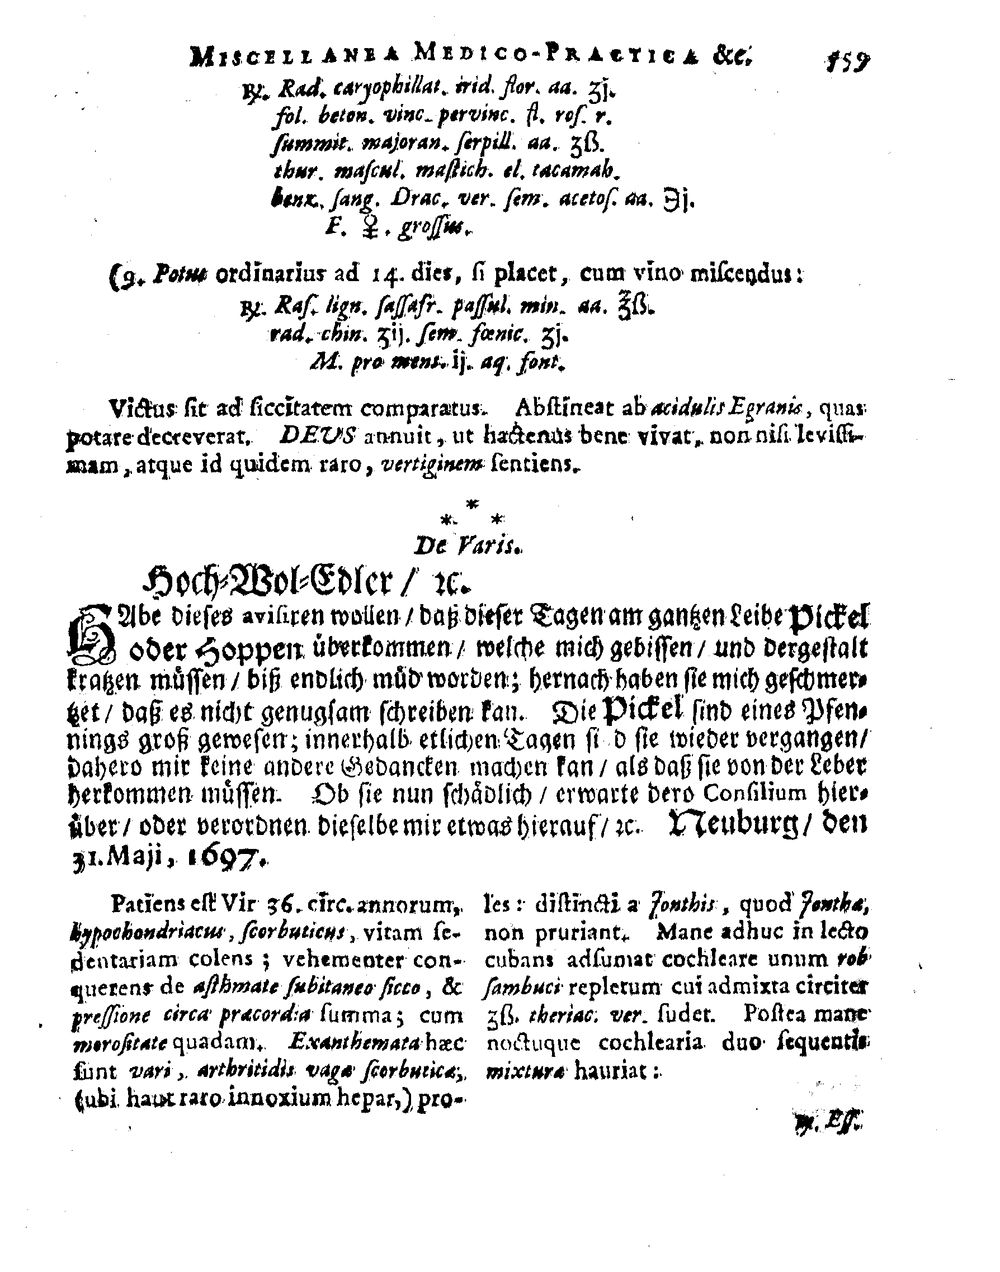 MISCELLANEA MEDICO-PRACTICA &c. 159
℞. Rad. caryophillat. irid. flor. aa. ʒj.
fol. beton. vinc-pervinc. fl. roſ. r.
ſummit. majoran. ſerpill. aa. ʒß.
thur. maſcul. maſtich. el. tacamah.
benz. ſang. Drac. ver. ſem. acetoſ. aa. ℈j.
F. ♀. groſſus.
(9. Potus ordinarius ad 14. dies, ſi placet, cum vino miſcendus:
℞. Raſ. lign. ſaſſafr. paſſul. min. aa. ℥ß.
rad. chin. ʒij. ſem. fœnic. ʒj.
M. pro mens. ij. aq. font.
Victus ſit ad ſiccitatem comparatus. Abſtineat ab acidulis Egranis, quas
potare decreverat. DEUS annuit, ut hactenus bene vivat, non niſi leviſſi-
mam, atque id quidem raro, vertiginem ſentiens.
*
* *
De Varis.
Hoch-Wol-Edler / ꝛc.
HAbe dieſes aviſiren wollen / daß dieſer Tagen am gantzen Leibe Pickel
oder Hoppen uͤberkommen / welche mich gebiſſen / und dergeſtalt
kratzen muͤſſen / biß endlich muͤd worden; hernach haben ſie mich geſchmer-
tzet / daß es nicht genugſam ſchreiben kan. Die Pickel ſind eines Pfen-
nings groß geweſen; innerhalb etlichen Tagen ſi d ſie wieder vergangen /
dahero mir keine andere Gedancken machen kan / als daß ſie von der Leber
herkommen muͤſſen. Ob ſie nun ſchaͤdlich / erwarte dero Conſilium hier-
uͤber / oder verordnen dieſelbe mir etwas hierauf / ꝛc. Neuburg / den
31. Maji, 1697.
Patiens eſt Vir 36. circ. annorum,
hypochondriacus, ſcorbuticus, vitam ſe-
dentariam colens; vehementer con-
querens de aſthmate ſubitaneo ſicco, &
preſſione circa præcordia ſumma; cum
moroſitate quadam. Exanthemata hæc
ſunt vari, arthritidis vagæ ſcorbuticæ,
(ubi haut raro innoxium hepar,) pro-
les: diſtincti a Jonthis, quod Jontha,
non pruriant. Mane adhuc in lecto
cubans adſumat cochleare unum rob
ſambuci repletum cui admixta circiter
ʒß. theriac. ver. ſudet. Poſtea mane
noctuque cochlearia duo ſequentis
mixturæ hauriat:
℞. Eſſ.